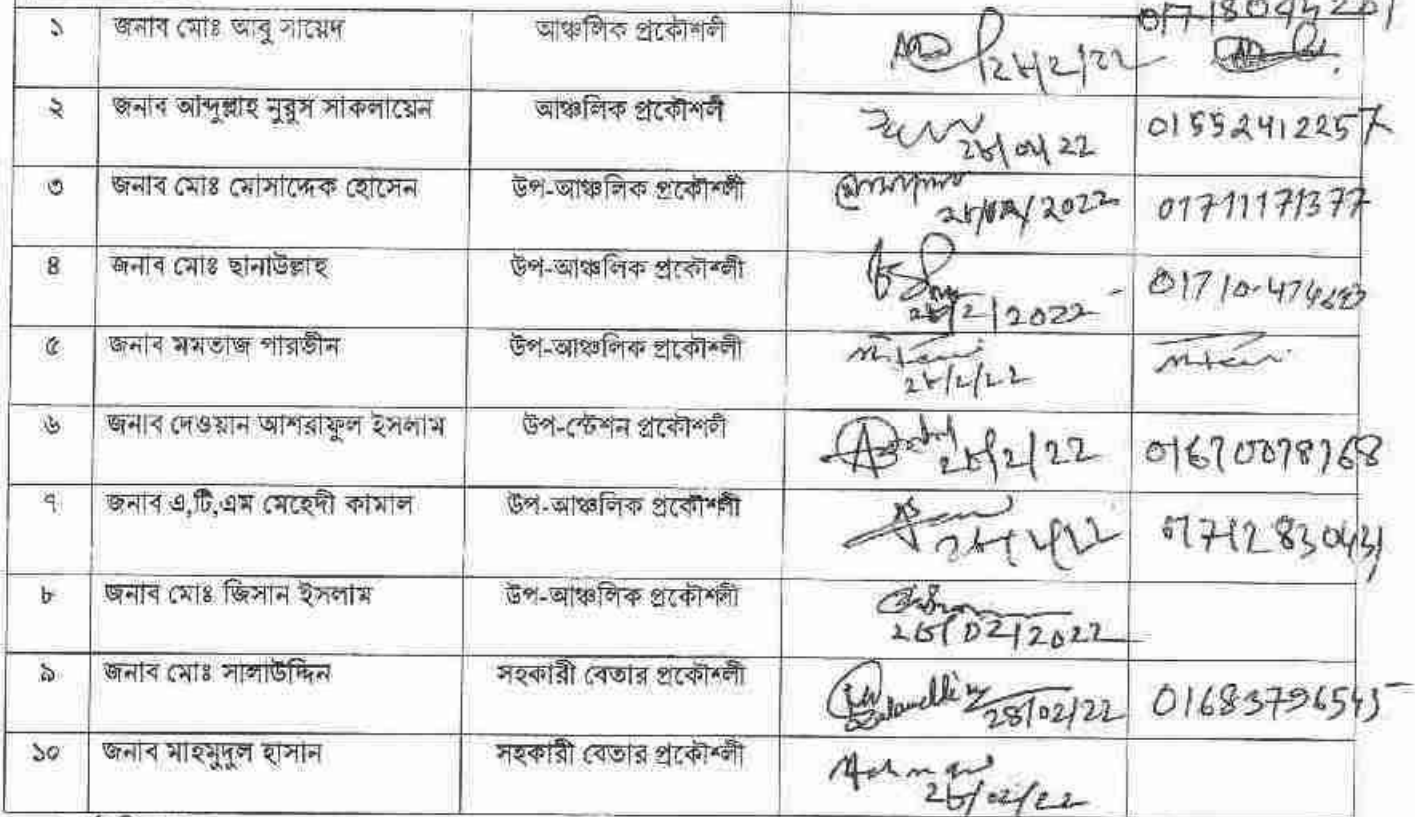 ১ জনাব মোঃ আবু সায়েদ আঞ্চলিক প্রকৌশলী 01718044201
২ জনাব আব্দুল্লাহ নুরুস সাকলায়েন আঞ্চলিক প্রকৌশলী 01552412257
৩ জনাব মোঃ মোসাদ্দেক হোসেন উপ-আঞ্চলিক প্রকৌশলী 2022 01711171377
৪ জনাব মোঃ ছানাউল্লাহ উপ-আঞ্চলিক প্রকৌশলী 28/2/2022
৫ জনাব মমতাজ পারভীন উপ-আঞ্চলিক প্রকৌশলী
৬ জনাব দেওয়ান আশরাফুল ইসলাম উপ-স্টেশন প্রকৌশলী 28/2/22 01670078768
৭ জনাব এ,টি,এম মেহেদী কামাল উপ-আঞ্চলিক প্রকৌশলী
৮ জনাব মোঃ জিসান ইসলাম উপ-আঞ্চলিক প্রকৌশলী 28/02/2022
৯ জনাব মোঃ সালাউদ্দিন সহকারী বেতার প্রকৌশলী 28/02/22 01683796545
১০ জনাব মাহমুদুল হাসান সহকারী বেতার প্রকৌশলী 28/02/22